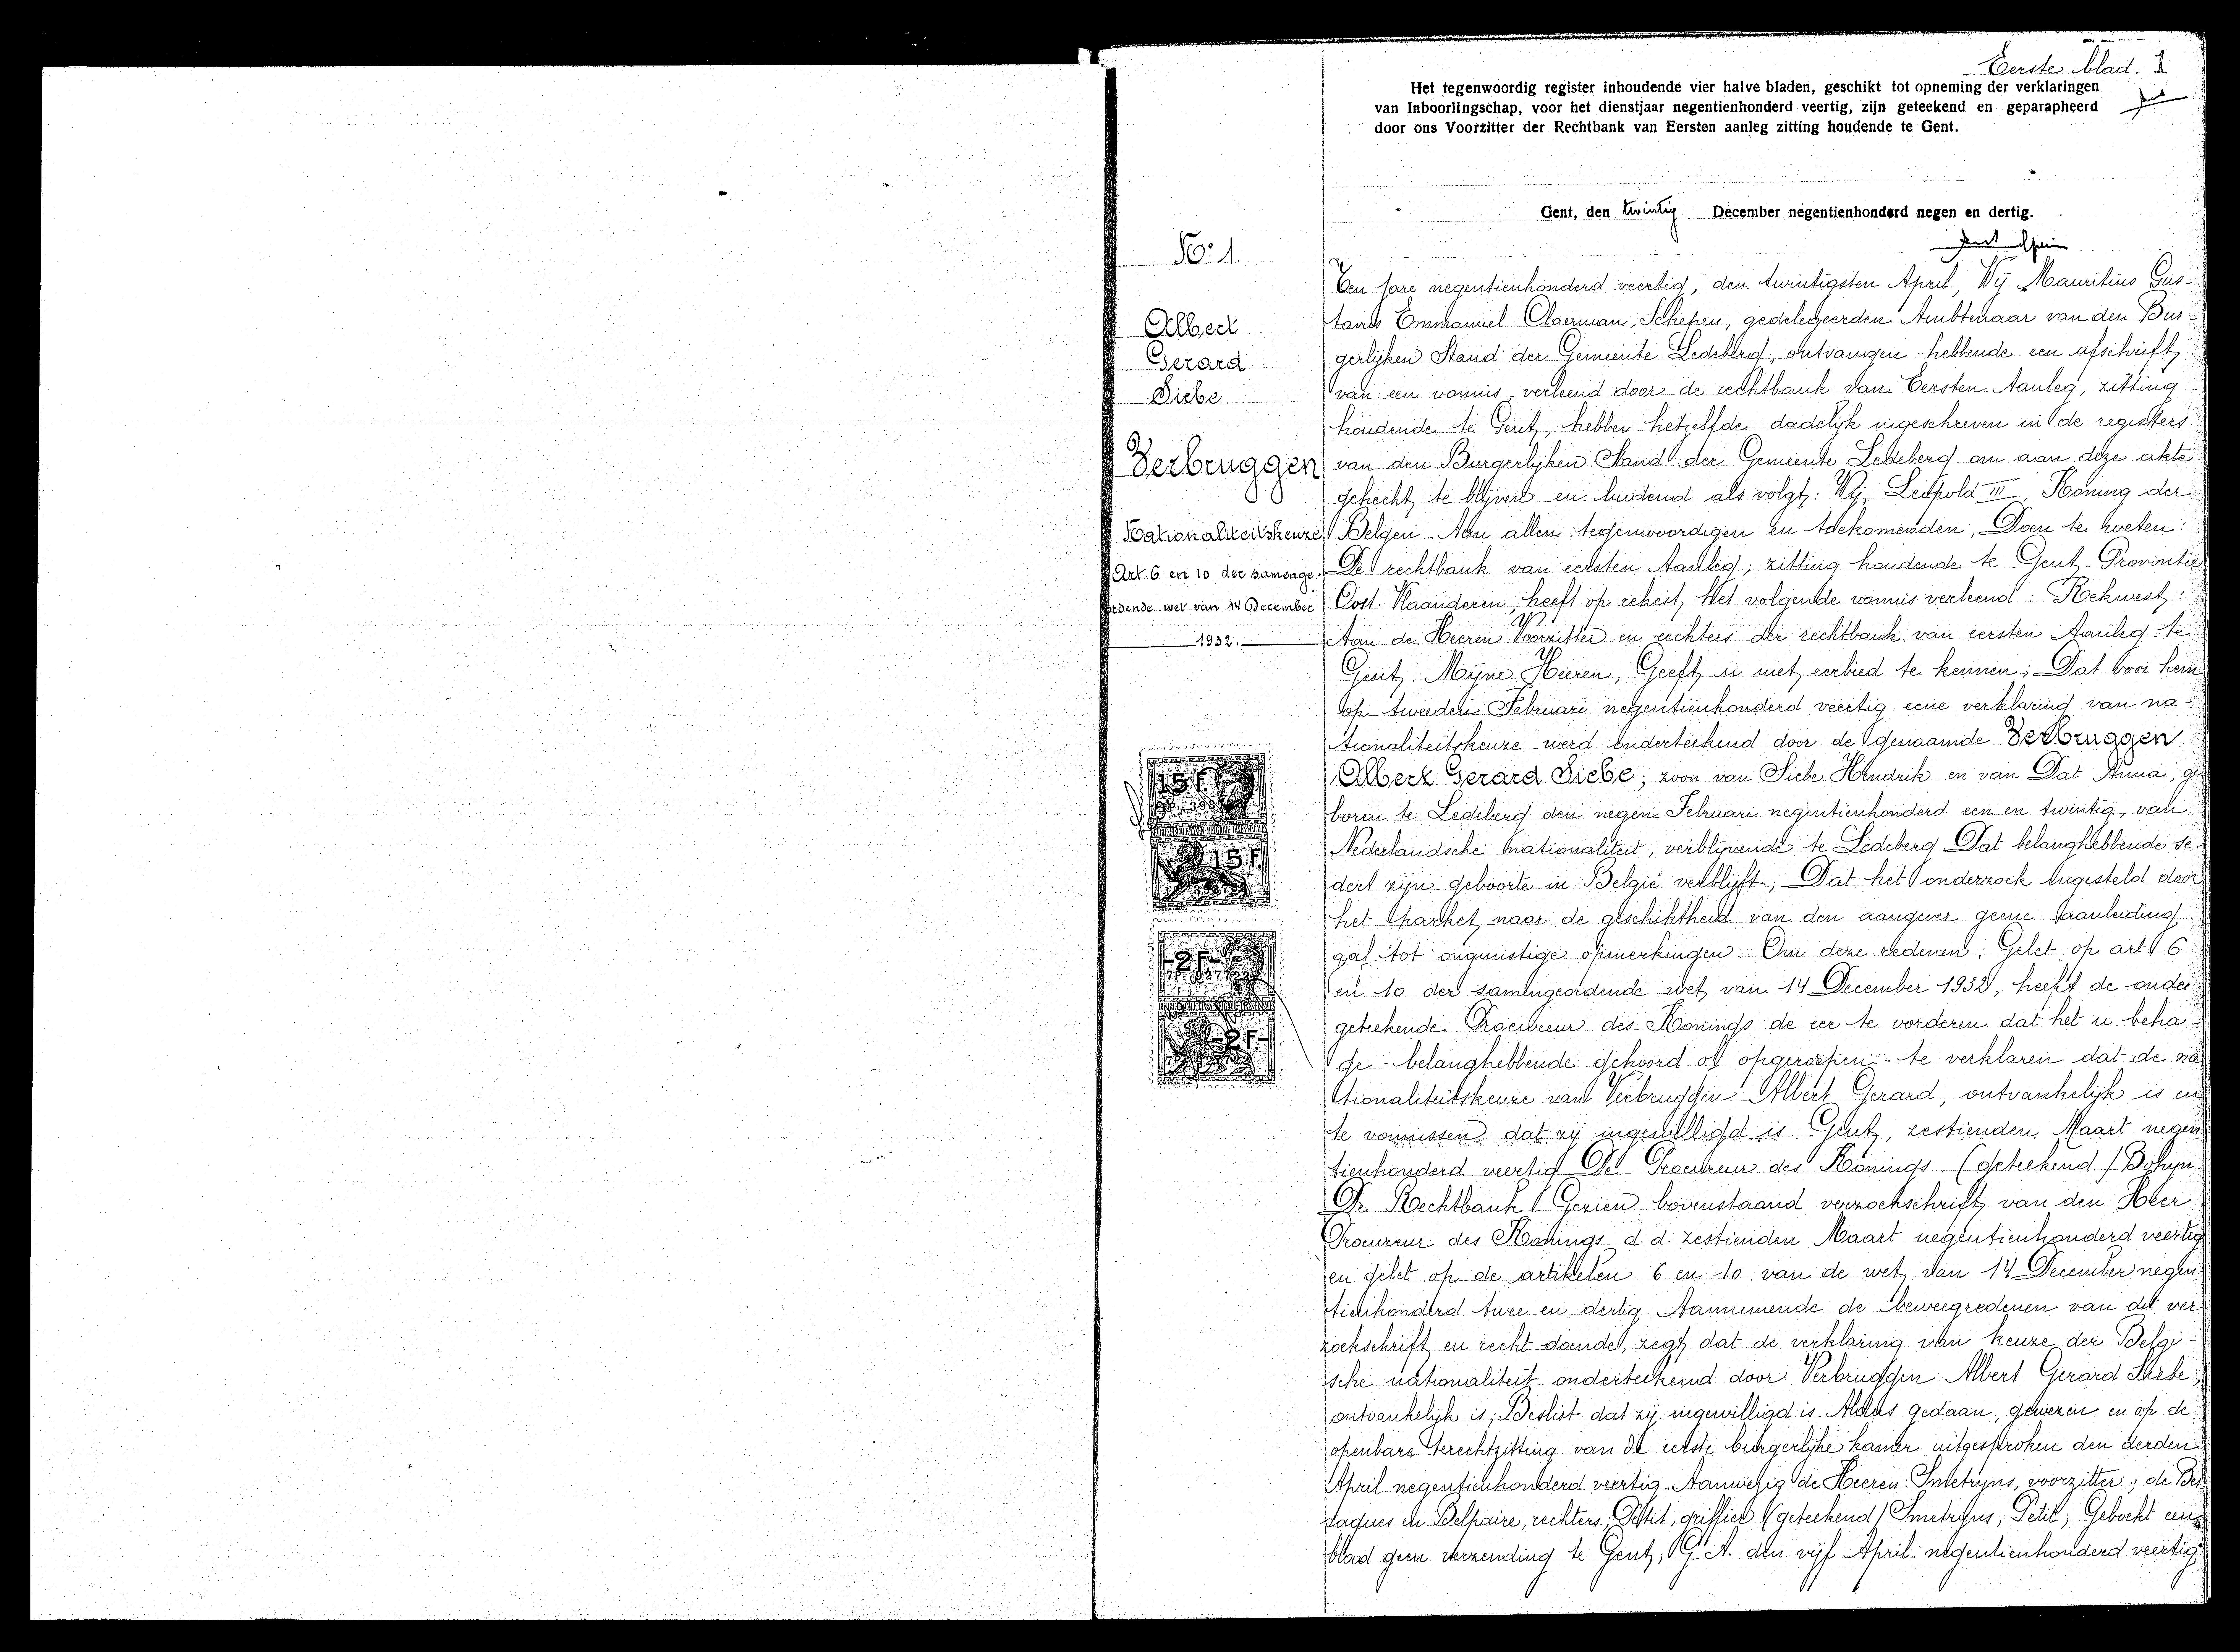 Eerste blad. 1
Het tegenwoordig register inhoudende vier halve bladen, geschikt tot opneming der verklaringen
van Inboorlingschap, voor het dienstjaar negentienhonderd veertig, zijn geteekend en geparapheerd
door ons Voorzitter der Rechtbank van Eersten aanleg zitting houdende te Gent.
Gent, den twintig December negentienhonderd negen en dertig.
No: 1.
Albert
Gerard
Siebe
Verbruggen
Nationaliteitskeuze
Art 6 en 10 der samenge-
ordende wet van 14 December
1932.
15 F.
15 F.
-2 F.-
-2 F.-
Ten jare negentienhonderd veertig, den twintigsten April, Wij Mauritius Gus-
tavus Emmanuel Claerman, Schepen, gedelegeerden Ambtenaar van den Bur-
gerlijken Stand der Gemeente Ledeberg, ontvangen hebbende een afschrift
van een vonnis verleend door de rechtbank van Eersten Aanleg, zitting
houdende te Gent, hebben hetzelfde dadelijk ingeschreven in de registers
van den Burgerlijken Stand der Gemeente Ledeberg om aan deze akte
gehecht te blijven en luidend als volgt: Wij, Leopold III, Koning der
Belgen - Aan allen tegenwoordigen en toekomenden, Doen te weten:
De rechtbank van eersten Aanleg, zitting houdende te Gent - Provintie
Oost. Vlaanderen, heeft op rekest, het volgende vonnis verleend: Rekwest:
Aan de Heeren Voorzitter en rechters der rechtbank van eersten Aanleg te
Gent. Mijne Heeren, Geeft u met eerbied te kennen; Dat voor hem
op tweeden Februari negentienhonderd veertig eene verklaring van na-
tionaliteitskeuze werd onderteekend door de genaamde Verbruggen
Albert Gerard Siebe; zoon van Siebe Hendrik en van Dat Anna, ge
boren te Ledeberg den negen Februari negentienhonderd een en twintig, van
Nederlandsche nationaliteit, verblijvende te Ledeberg Dat belanghebbende se-
dert zijn geboorte in België verblijft; Dat het onderzoek ingesteld door
het parket naar de geschiktheid van den aangever geene aanleiding
gaf tot ongunstige opmerkingen. Om deze redenen; Gelet op art. 6
en 10 der samengeordende wet van 14 December 1932, heeft de onder-
geteekende Procureur des Konings de eer te vorderen dat het u beha-
ge - belanghebbende gehoord of opgeroepen - te verklaren dat de na
tionaliteitskeuze van Verbruggen Albert Gerard, ontvankelijk is en
te vonnissen dat zij ingewilligd is. Gent, zestienden Maart negen
tienhonderd veertig De Procureur des Konings (geteekend)
De Rechtbank Gezien bovenstaand verzoekschrift van den Heer
Procureur des Konings d. d. zestienden Maart negentienhonderd veertig
en gelet op de artikelen 6 en 10 van de wet van 14 December negen
tienhonderd twee en dertig Aannemende de beweegredenen van dit ver-
zoekschrift en recht doende, zegt dat de verklaring van keuze der Belgi-
sche nationaliteit onderteekend door Verbruggen Albert Gerard Siebe,
ontvankelijk is; Beslist dat zij ingewilligd is. Aldus gedaan, gewezen en op de
openbare terechtzitting van de eerste burgerlijke kamer uitgesproken den derden
April negentienhonderd veertig. Aanwezig de Heeren: Smetryns, voorzitter; de Bus
aques en Belpaire, rechters; Petit, griffier (geteekend) Smetryns, Petit; Geboekt een
blad geen verzending te Gent, G. A. den vijf April negentienhonderd veertig